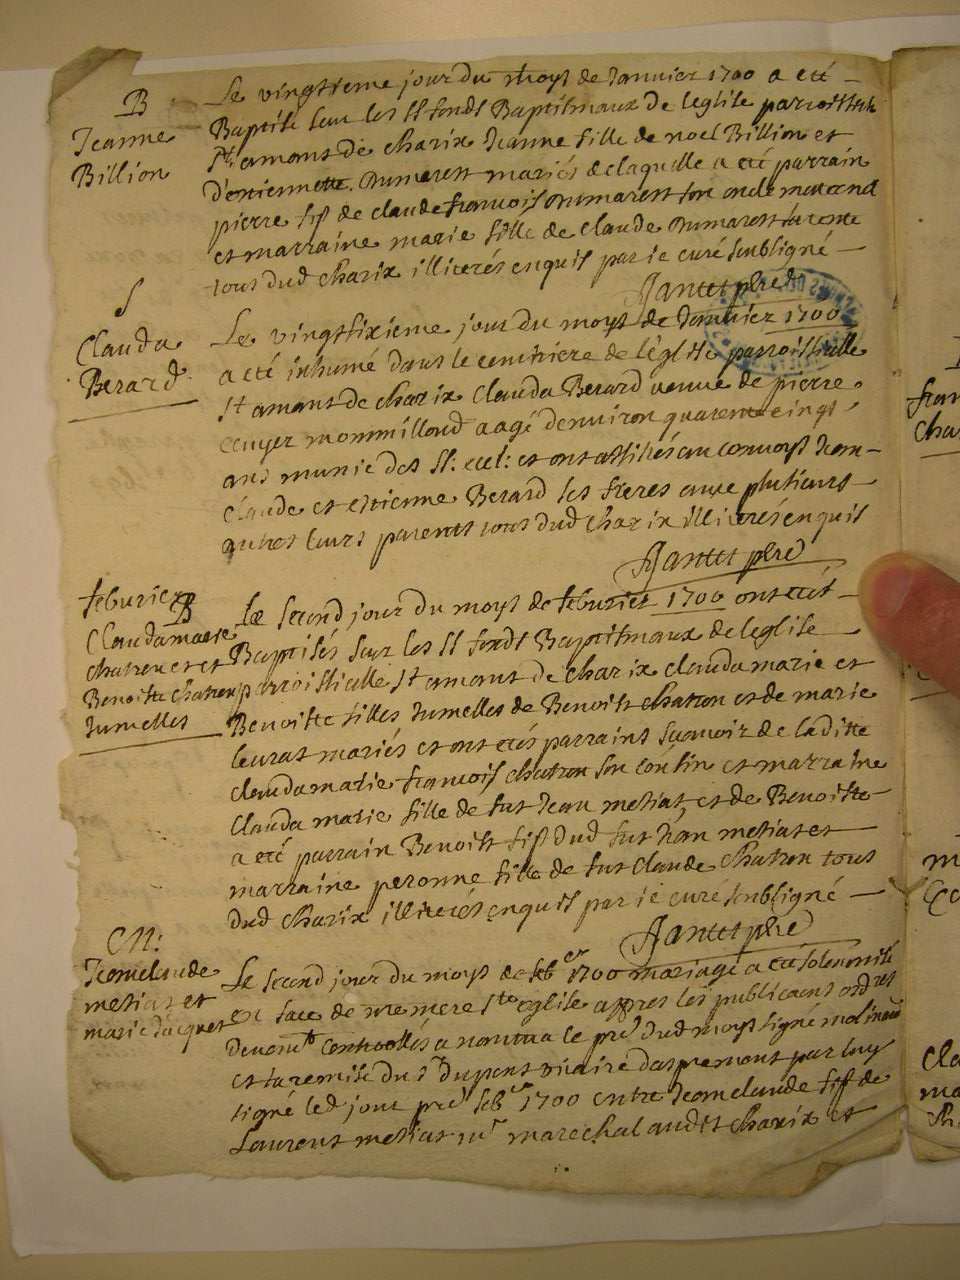 B
Jeanne
Billion
Le vingtieme jour du moys de Janvier 1700 a eté
Baptisé sur les Sts fonds Baptismaux de leglise parroissialle
St amant de charix Jeanne fille de noel Billion et
d'estiennette mariés de laquelle a eté parrain
pierre fils de claude françois son oncle maternel
et marraine marie fille de claude sa tente
tous dud charix illiterés enquis par je curé soubsigné
Jantet pbre
S
Clauda
Berard
Le vingtsixieme jour du moys de Janvier 1700
a eté inhumé dans le cemitiere de leglise parroissialle
St amant de charix Clauda Berard veuve de pierre
ecuyer mommilloud aagé denviron quarente cinq
ans munie des St: eccl: et ont assistés au convoys Jean
Claude et estienne Berard ses freres avec plusieurs
autres leurs parents tous dud charix illiterés enquis
Jantet pbre
feburier
B
Claudamarie
chatron et et
Benoiste chatron
Jumelles
Le second jour du moys de feburier 1700 ont eté
Baptisés sur les St fonds Baptismaux de leglise
parroissialle St amant de charix claudamarie et
Benoiste filles Jumelles de Benoist chatron et de marie
leurat mariés et ont etés parrains scavoir de laditte
claudamarie françois chatron son cousin et marraine
Clauda marie fille de fut Jean metias, et de Benoiste
a eté parrain Benoist fils dud fut Jean metias et
marraine peronne fille de fut claude chatron tous
dud charix illiterés enquis par je curé soubsigné
Jantet pbre
M:
Jeanclaude
metias et
marie Jacquet
Le second jour du moys de feber 1700 mariage a eté solemnisé
en face de nre mere Ste eglise appres les publicaons
Devemt controollés a nantua le prer dud moys signé molinard
et la remise du Sr dupont vicaire daspremont par luy
signé led jour prer feber 1700 entre Jeanclaude fils de
Laurent metias mr marechal audit charix et